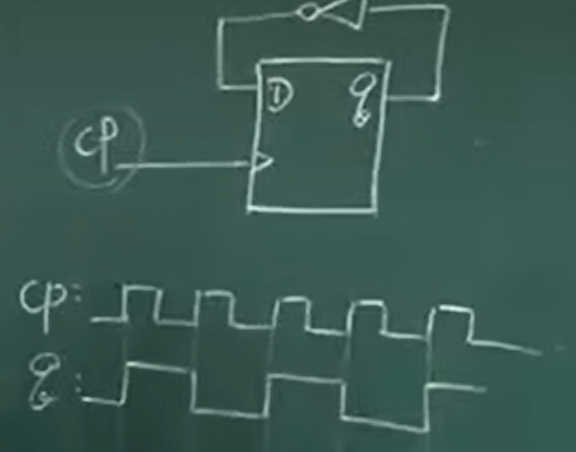 D q
CP
CP:
q: